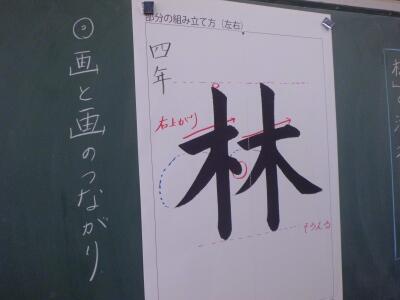 ◎画と画のつながり
部分の組み立て方(左右)
四年
右上がり
林
そろえる